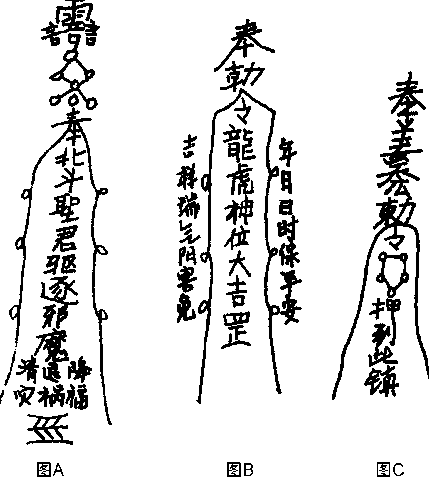 奉北斗聖君驱逐邪魔
降福
退祸
清灾
奉勅令龍虎神位大吉罡
年月日时保平安
吉祥瑞气阳害免
奉
勅令
押到此镇
图A
图B
图C